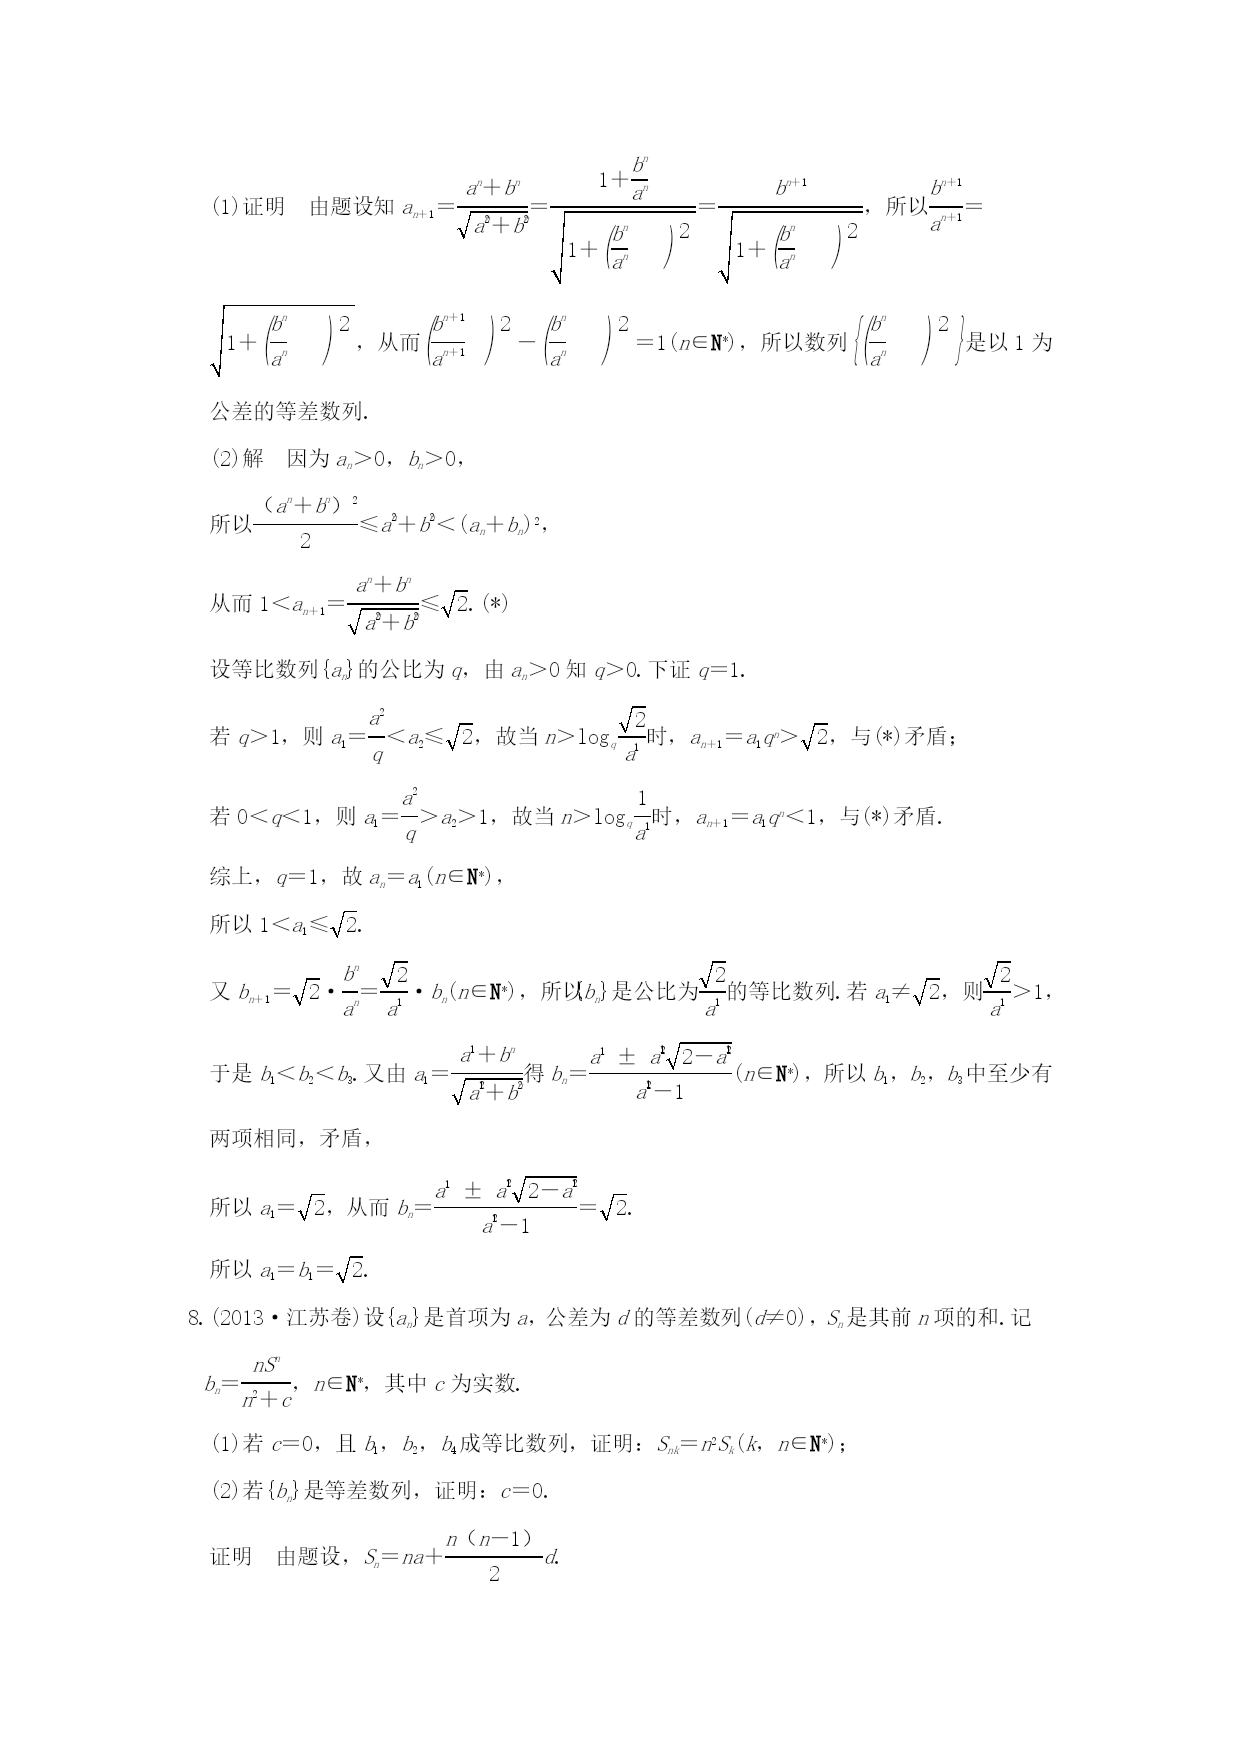 (1)证明　由题设知 aₙ₊₁=(aⁿ+bⁿ)/√(a²ₙ+b²ₙ)=(1+bⁿ/aⁿ)/√(1+(bⁿ/aⁿ)²)=bⁿ⁺¹/√(1+(bⁿ/aⁿ)²)，所以bⁿ⁺¹/aⁿ⁺¹=
√(1+(bⁿ/aⁿ)²)，从而(bⁿ⁺¹/aⁿ⁺¹)²-(bⁿ/aⁿ)²=1(n∈N*)，所以数列{(bⁿ/aⁿ)²}是以 1 为
公差的等差数列.
(2)解　因为 aₙ>0，bₙ>0，
所以（aⁿ+bⁿ）²/2≤a²ₙ+b²ₙ<(aₙ+bₙ)²，
从而 1<aₙ₊₁=(aⁿ+bⁿ)/√(a²ₙ+b²ₙ)≤√2.(*)
设等比数列{aₙ}的公比为 q，由 aₙ>0 知 q>0.下证 q=1.
若 q>1，则 a₁=a²/q<a₂≤√2，故当 n>log_q(√2/a¹)时，aₙ₊₁=a₁qⁿ>√2，与(*)矛盾；
若 0<q<1，则 a₁=a²/q>a₂>1，故当 n>log_q(1/a¹)时，aₙ₊₁=a₁qⁿ<1，与(*)矛盾.
综上，q=1，故 aₙ=a₁(n∈N*)，
所以 1<a₁≤√2.
又 bₙ₊₁=√2·bⁿ/aⁿ=√2/a¹·bₙ(n∈N*)，所以{bₙ}是公比为√2/a¹的等比数列.若 a₁≠√2，则√2/a¹>1，
于是 b₁<b₂<b₃.又由 a₁=(a¹+bⁿ)/√(a²₁+b²ₙ)得 bₙ=(a¹ ± a²₁√(2-a²₁))/(a²₁-1)(n∈N*)，所以 b₁，b₂，b₃中至少有
两项相同，矛盾，
所以 a₁=√2，从而 bₙ=(a¹ ± a²₁√(2-a²₁))/(a²₁-1)=√2.
所以 a₁=b₁=√2.
8.(2013·江苏卷)设{aₙ}是首项为 a，公差为 d 的等差数列(d≠0)，Sₙ是其前 n 项的和.记
bₙ=nSⁿ/(n²+c)，n∈N*，其中 c 为实数.
(1)若 c=0，且 b₁，b₂，b₄成等比数列，证明：Sₙₖ=n²Sₖ(k，n∈N*)；
(2)若{bₙ}是等差数列，证明：c=0.
证明　由题设，Sₙ=na+n（n-1）/2 d.